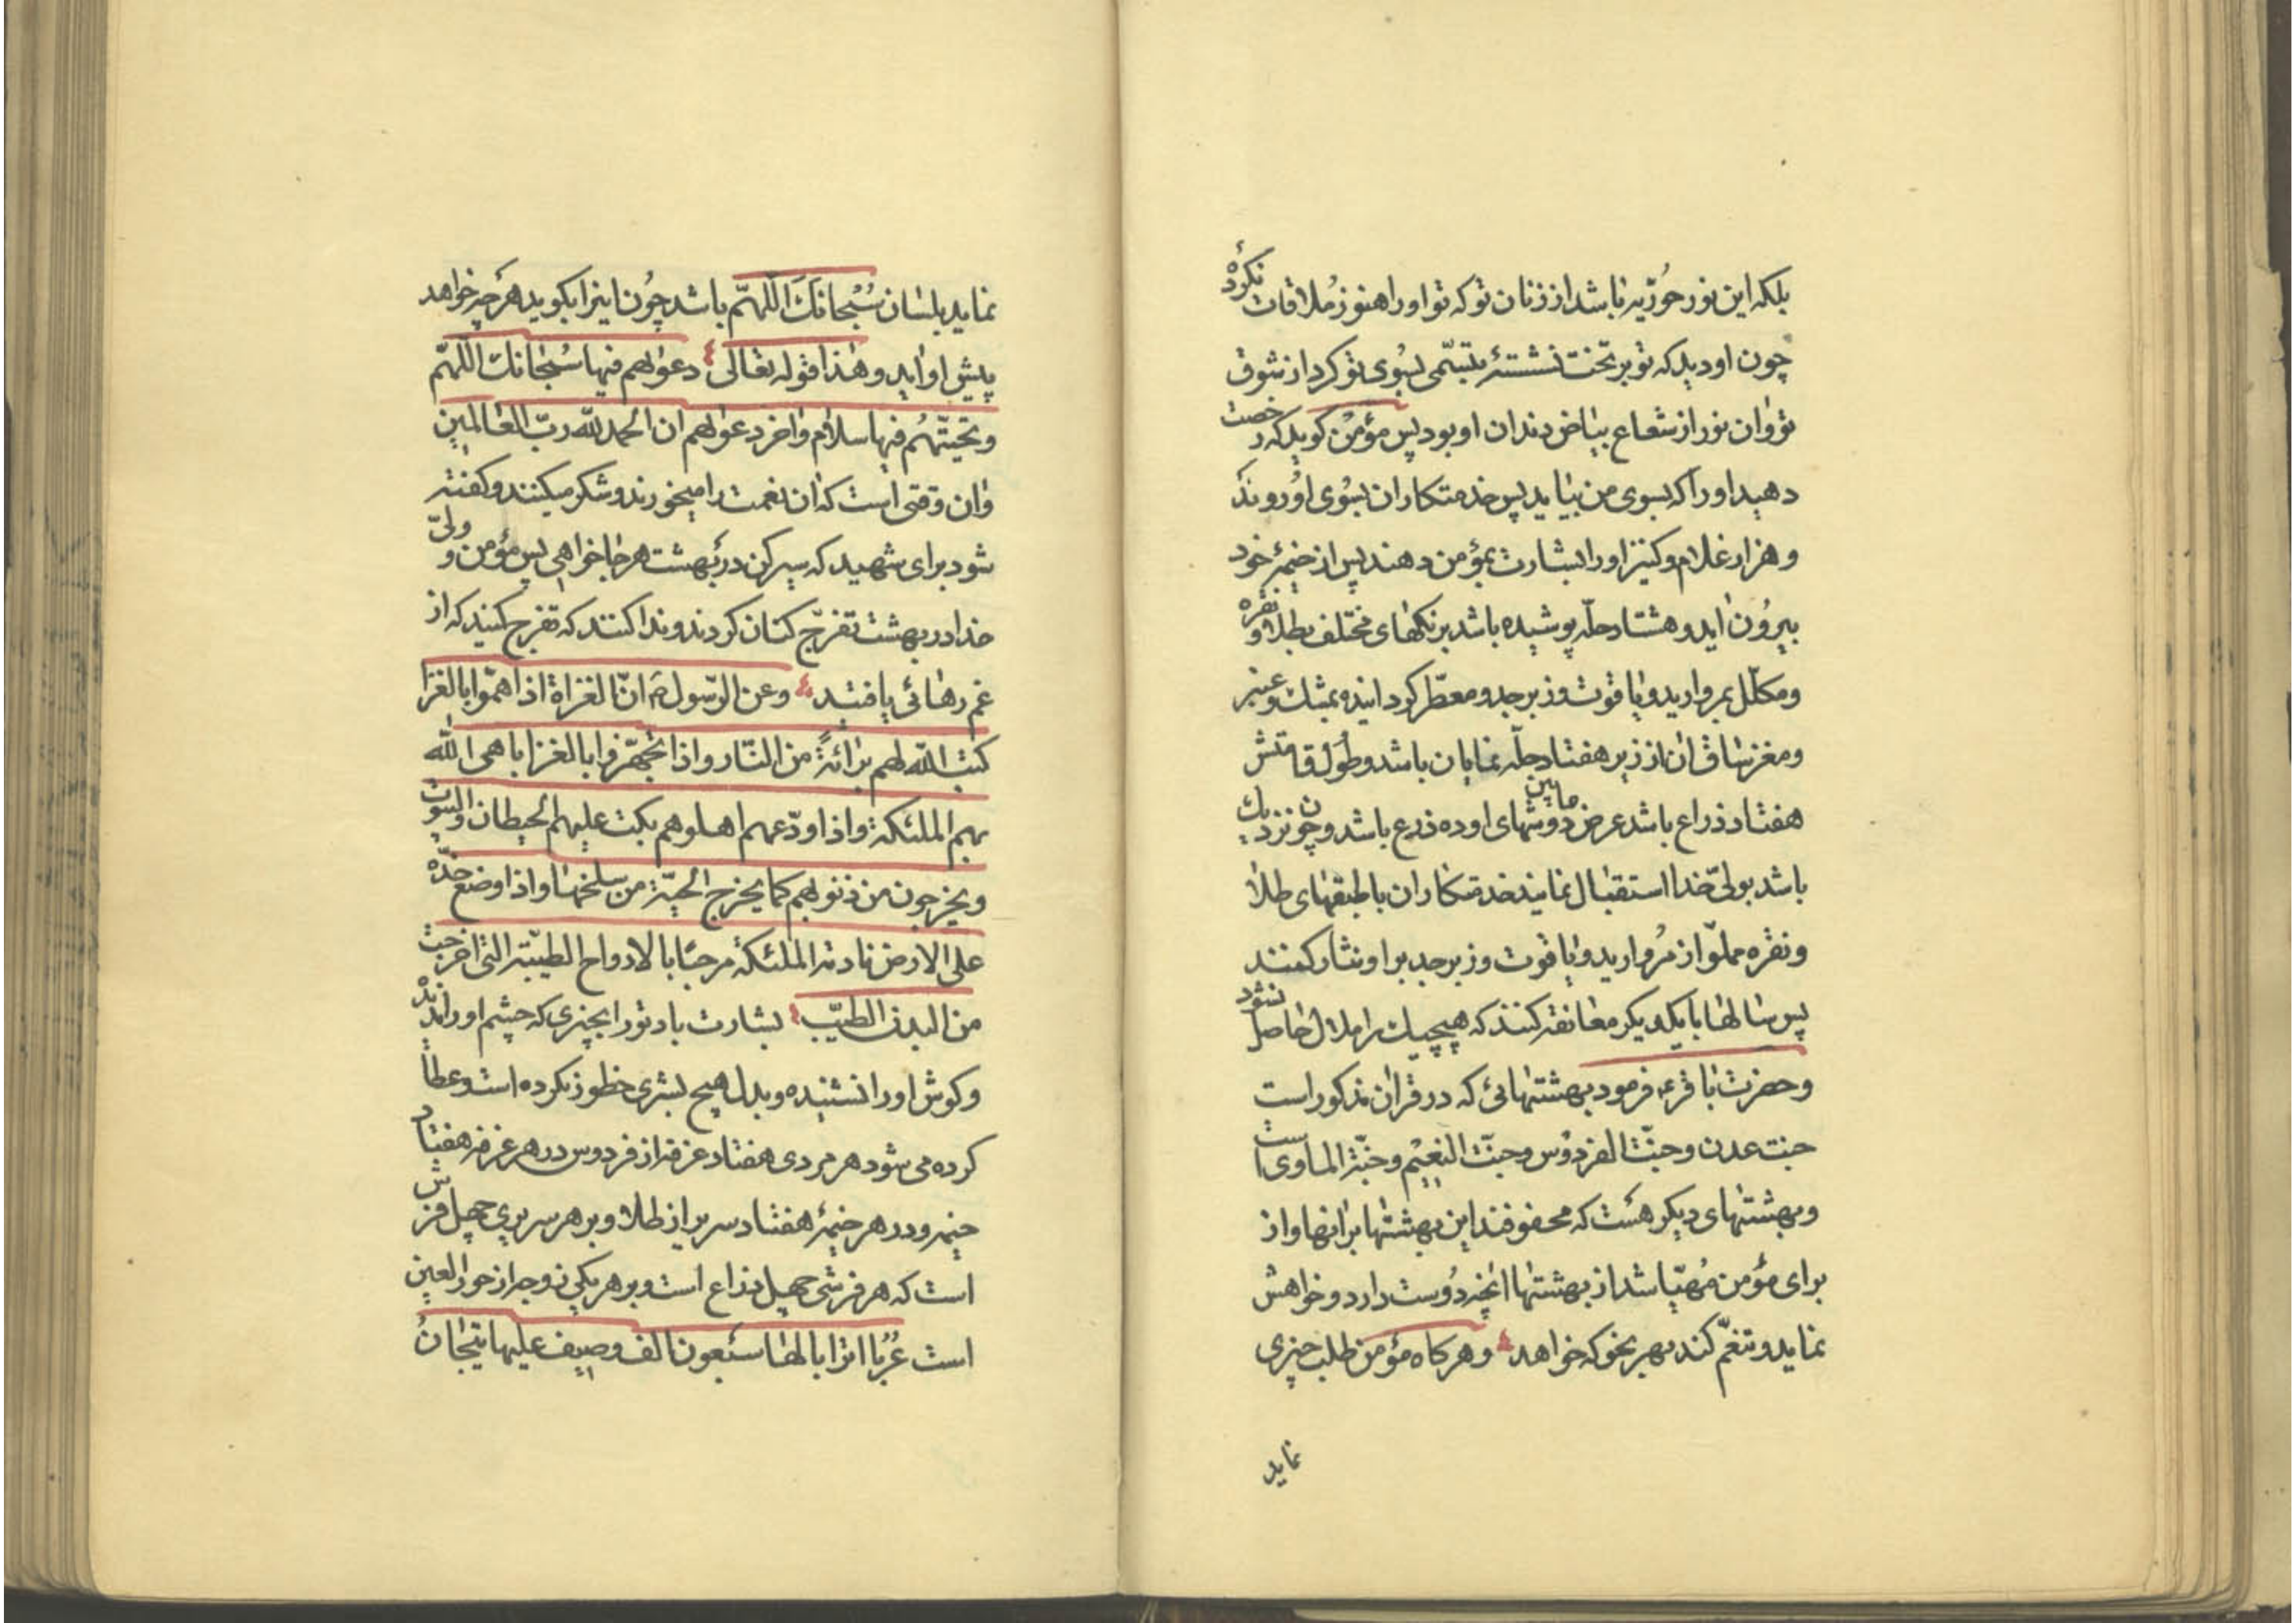 بلکه این نور حوریّه باشد از زنان تو که تو او را هنوز ملاقات نکرده
چون او دید که تو بر تخت نشستهٔ بتبسّمی بسوی تو کرد از شوق
تو و آن نور از شعاع بیاض دندان او بود پس مؤمن کوید که رخصت
دهید او را که بسوی من بیاید پس خدمتکاران بسوی او روند
و هزار غلام و کنیز او را بشارت بمؤمن دهند پس از خیمهٔ خود
بیرون آید و هشتاد حلّه پوشیده باشد برنکهای مختلف بطلا و نقره
و مکلّل بمروارید و یاقوت و زبرجد و معطّر کردانیده بمشک و عنبر
و مغز ساق آن از زیر هفتاد حلّه نمایان باشد و طول قامتش
هفتاد ذراع باشد عرض مابین دوشهای او ده ذرع باشد و چون نزدیک
باشد بولیّ خدا استقبال نمایند خدمتکاران با طبقهای طلا
و نقره مملوّ از مروارید و یاقوت و زبرجد بر او نثار کنند
پس سالها با یکدیکر معانقه کنند که هیچیک را ملال حاصل نشود
و حضرت باقر ع فرمود بهشتهائی که در قران مذکور است
جنت عدن و جنّت الفردوس و جنّت النعیم و جنّة الماوی است
و بهشتهای دیکر هست که محفوفند این بهشتها بر انها و از
برای مؤمن مهیّا باشد از بهشتها انچه دوست دارد و خواهش
نماید و تنعّم کند بهر نحو که خواهد و هرکاه مؤمن طلب چیزی
نماید
نماید بلسان سُبْحانَکَ اللّهمّ باشد چون اینرا بکوید هر چه خواهد
پیش او آید و هذا قوله تعالی دعواهم فیها سبحانک اللّهمّ
و تحیّتهم فیها سلام و اخر دعواهم ان الحمد للّه ربّ العالمین
و ان وقتی است که ان نعمت را میخورند و شکر میکنند و کفته
شود برای شهید که سیر کن در بهشت هر جا خواهی پس مؤمن و ولیّ
خدا در بهشت تفرّج کنان کردند و ندا کنند که تفرج کنید که از
غم رهائی یافتید و عن الرّسول ص انّ الغزاة اذا همّوا بالغزا
کتب اللّه لهم برائة من النّار و اذا تجهّزوا بالغزا باهی اللّه
بهم الملئکة و اذا ودّعهم اهلوهم بکت علیهم الحیطان و البیوت
و یخرجون من ذنوبهم کما یخرج الحیّة من سلخها و اذا وضع خدّه
علی الارض نادته الملئکة مرحبا بالارواح الطیّبة التی اخرجت
من البدن الطیّب بشارت باد تو را بچیزی که چشم او را ندیده
و کوش او را نشنیده و بدل هیچ بشری خطور نکرده است و عطا
کرده می شود هر مردی هفتاد غرفه از فردوس در هر غرفه هفتاد
خیمه و در هر خیمهٔ هفتاد سریر از طلا و بر هر سریری چهل فرش
است که هر فرشی چهل ذراع است و بر هر یکی زوجه از حور العین
است عُرُبا اترابا لها سبعون الف وصیف علیها تیجان